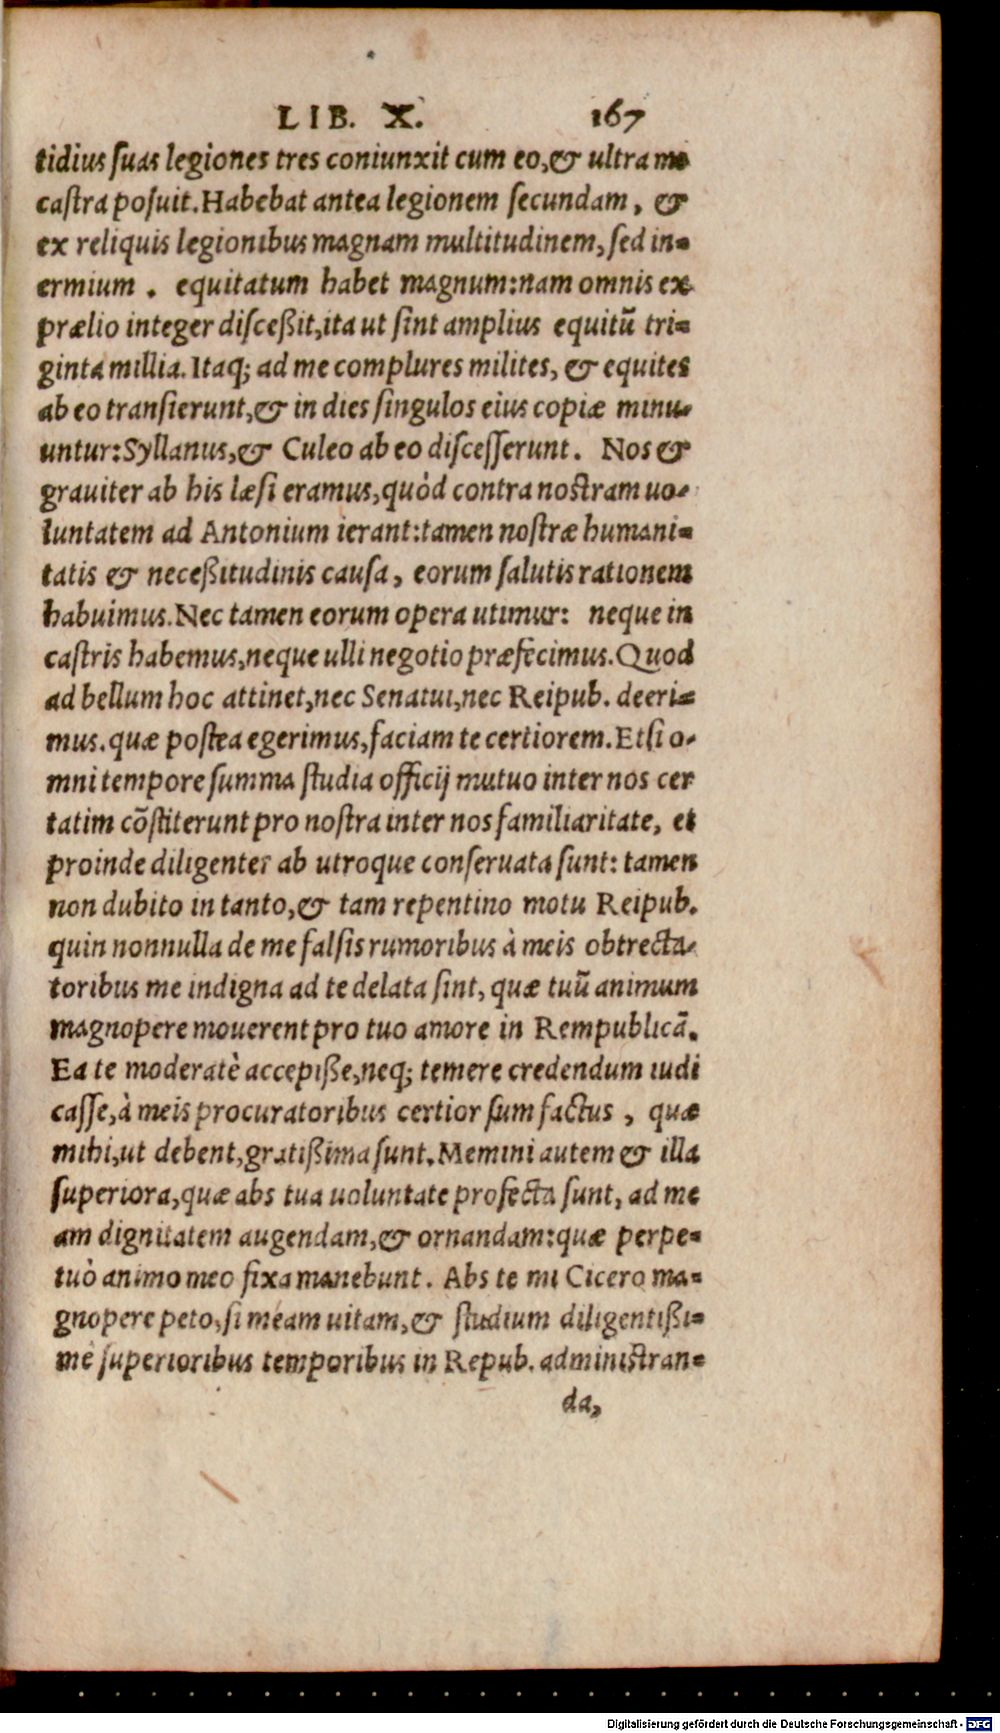 LIB. X. 167
tidius ſuas legiones tres coniunxit cum eo,& ultra me
caſtra poſuit.Habebat antea legionem ſecundam, &
ex reliquis legionibus magnam multitudinem,ſed in-
ermium. equitatum habet magnum:nam omnis ex
prælio integer diſceßit,ita ut ſint amplius equitū tri-
ginta millia.Itaq; ad me complures milites, & equites
ab eo tranſierunt,& in dies ſingulos eius copiæ minu-
untur:Syllanus,& Culeo ab eo diſceſſerunt. Nos &
grauiter ab his læſi eramus,quòd contra noſtram uo-
luntatem ad Antonium ierant:tamen noſtræ humani-
tatis & neceßitudinis cauſa, eorum ſalutis rationem
habuimus.Nec tamen eorum opera utimur: neque in
caſtris habemus,neque ulli negotio præfecimus.Quod
ad bellum hoc attinet,nec Senatui,nec Reipub. deeri-
mus.quæ poſtea egerimus,faciam te certiorem.Etſi o-
mni tempore ſumma ſtudia officij mutuo inter nos cer
tatim cōſtiterunt pro noſtra inter nos familiaritate, et
proinde diligenter ab utroque conſeruata ſunt: tamen
non dubito in tanto,& tam repentino motu Reipub.
quin nonnulla de me falſis rumoribus à meis obtrecta-
toribus me indigna ad te delata ſint, quæ tuū animum
magnopere mouerent pro tuo amore in Rempublicā.
Ea te moderatè accepiße,neq; temere credendum iudi
caſſe,à meis procuratoribus certior ſum factus, quæ
mihi,ut debent,gratißima ſunt.Memini autem & illa
ſuperiora,quæ abs tua uoluntate profecta ſunt, ad me
am dignitatem augendam,& ornandam:quæ perpe-
tuò animo meo fixa manebunt. Abs te mi Cicero ma-
gnopere peto,ſi meam uitam,& ſtudium diligentißi-
mè ſuperioribus temporibus in Repub. adminiſtran-
da,
Digitalisierung gefördert durch die Deutsche Forschungsgemeinschaft - DFG